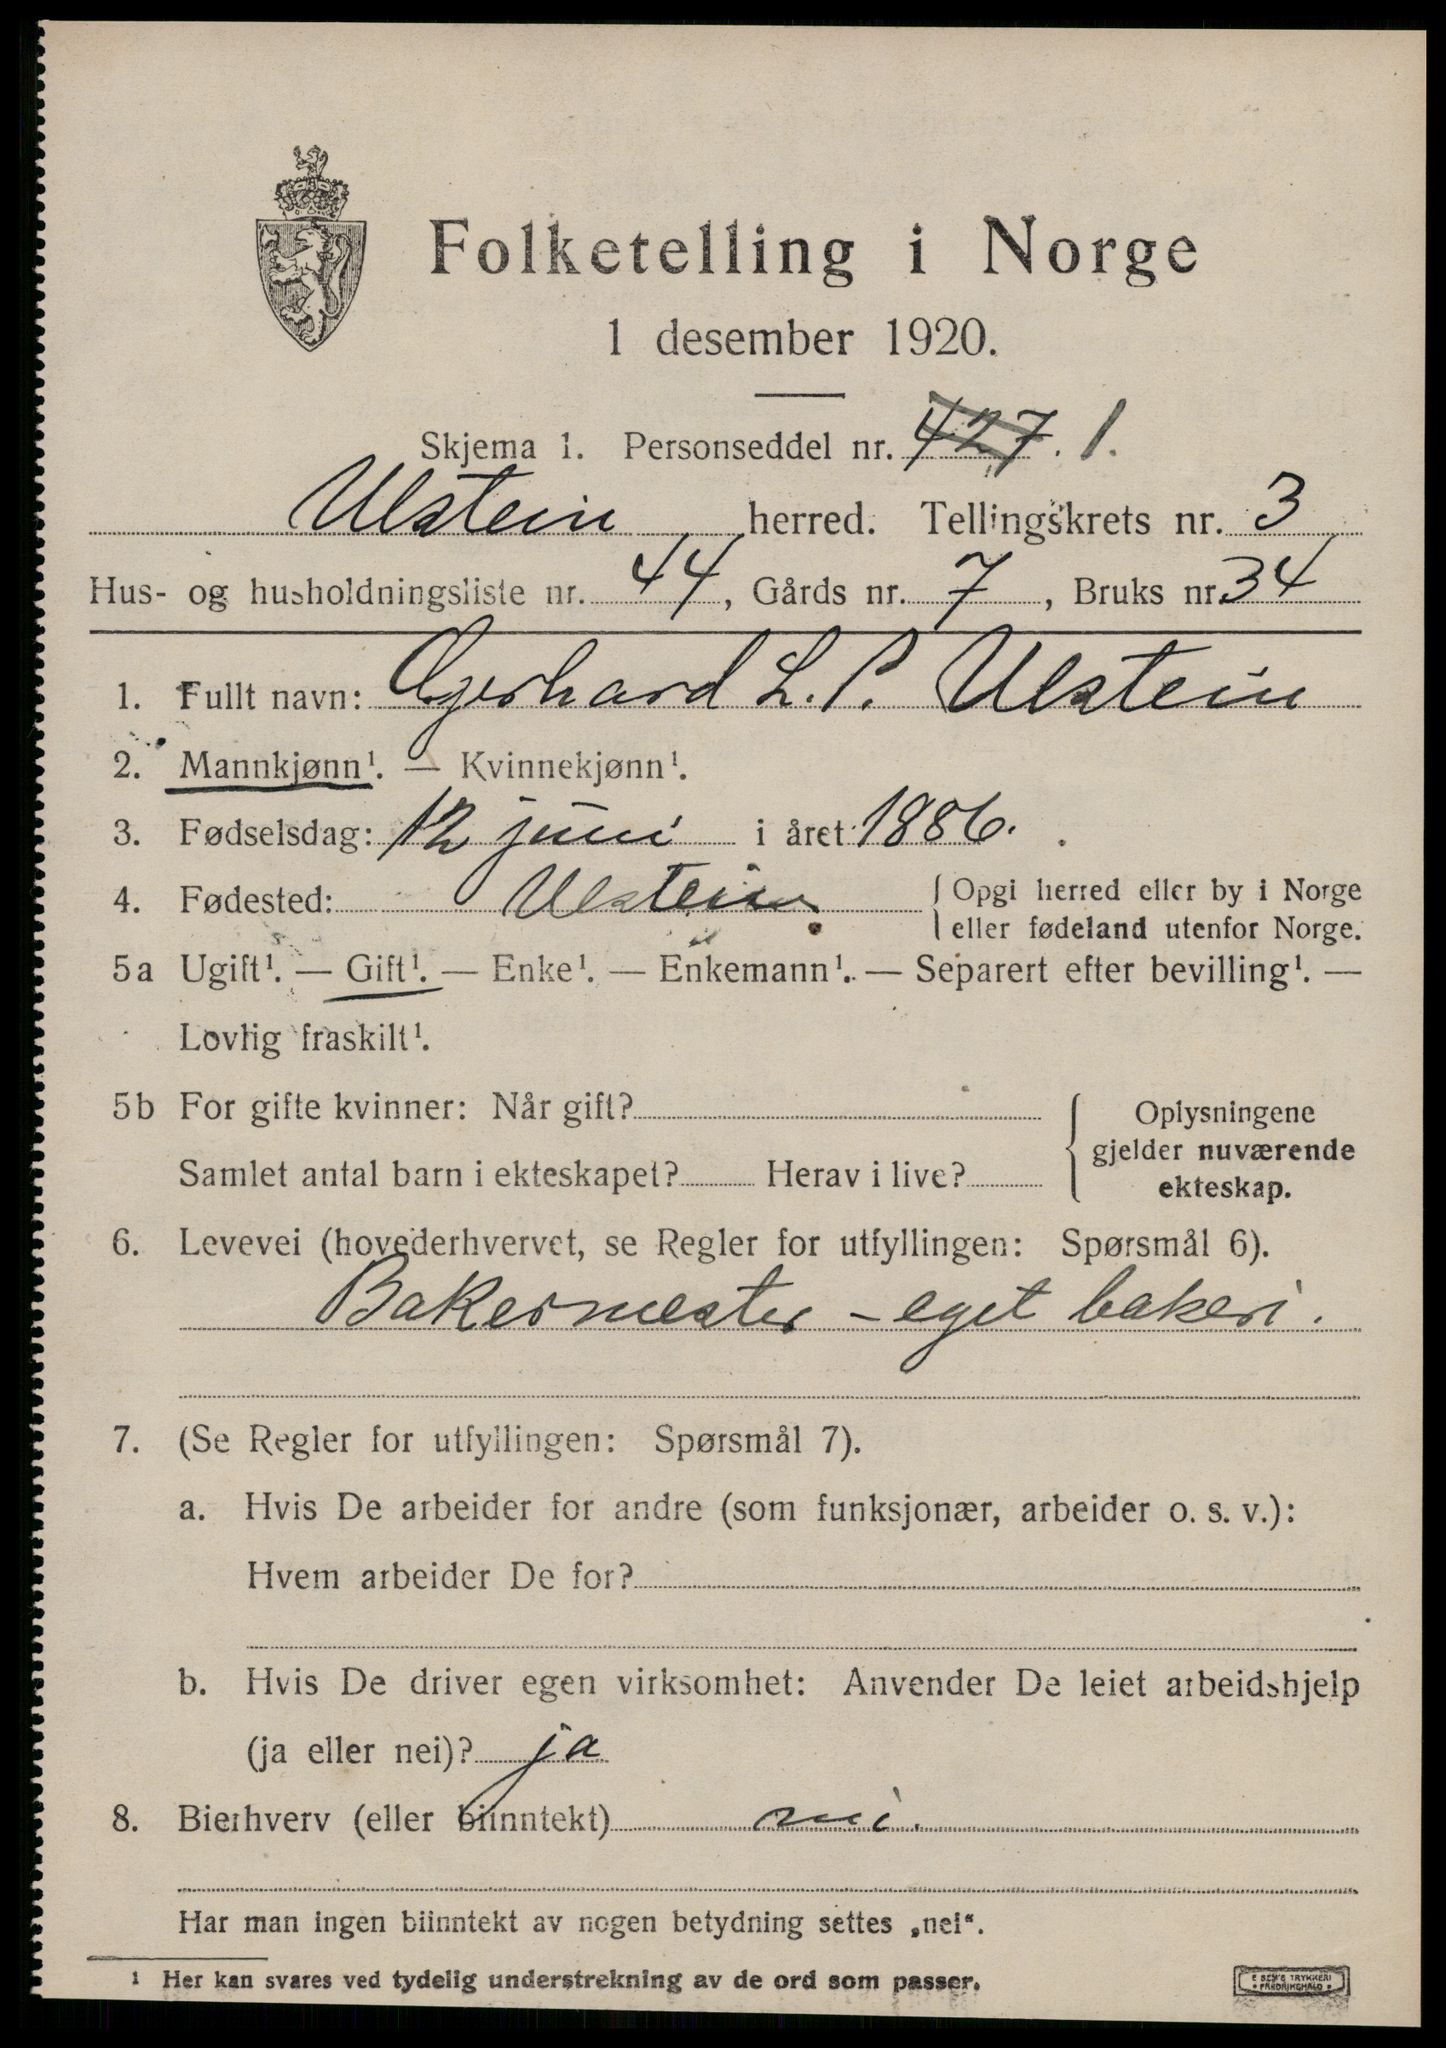 Folketelling i Norge
1 desember 1920.
Skjema 1. Personseddel nr. 427. 1.
Ulstein herred. Tellingskrets nr. 3
Hus- og husholdningsliste nr. 44, Gårds nr. 7, Bruks nr. 34
1. Fullt navn: Gjerhard L. P. Ulstein
2. Mannkjønn¹. — Kvinnekjønn¹.
3. Fødselsdag: 12 juni i året 1886.
4. Fødested: Ulstein { Opgi herred eller by i Norge
eller fødeland utenfor Norge.
5a Ugift¹. — Gift¹. — Enke¹. — Enkemann¹. — Separert efter bevilling¹. —
Lovlig fraskilt¹.
5b For gifte kvinner: Når gift? { Oplysningene
gjelder nuværende
Samlet antal barn i ekteskapet? Herav i live? ekteskap.
6. Levevei (hovederhvervet, se Regler for utfyllingen: Spørsmål 6).
Bakermester – eget bakeri.
7. (Se Regler for utfyllingen: Spørsmål 7).
a. Hvis De arbeider for andre (som funksjonær, arbeider o. s. v.):
Hvem arbeider De for?
b. Hvis De driver egen virksomhet: Anvender De leiet arbeidshjelp
(ja eller nei)? ja
8. Bierhverv (eller biinntekt) nei.
Har man ingen biinntekt av nogen betydning settes „nei“.
¹ Her kan svares ved tydelig understrekning av de ord som passer.
E SEM'S TRYKKERI
• FREDRIKSHALD •